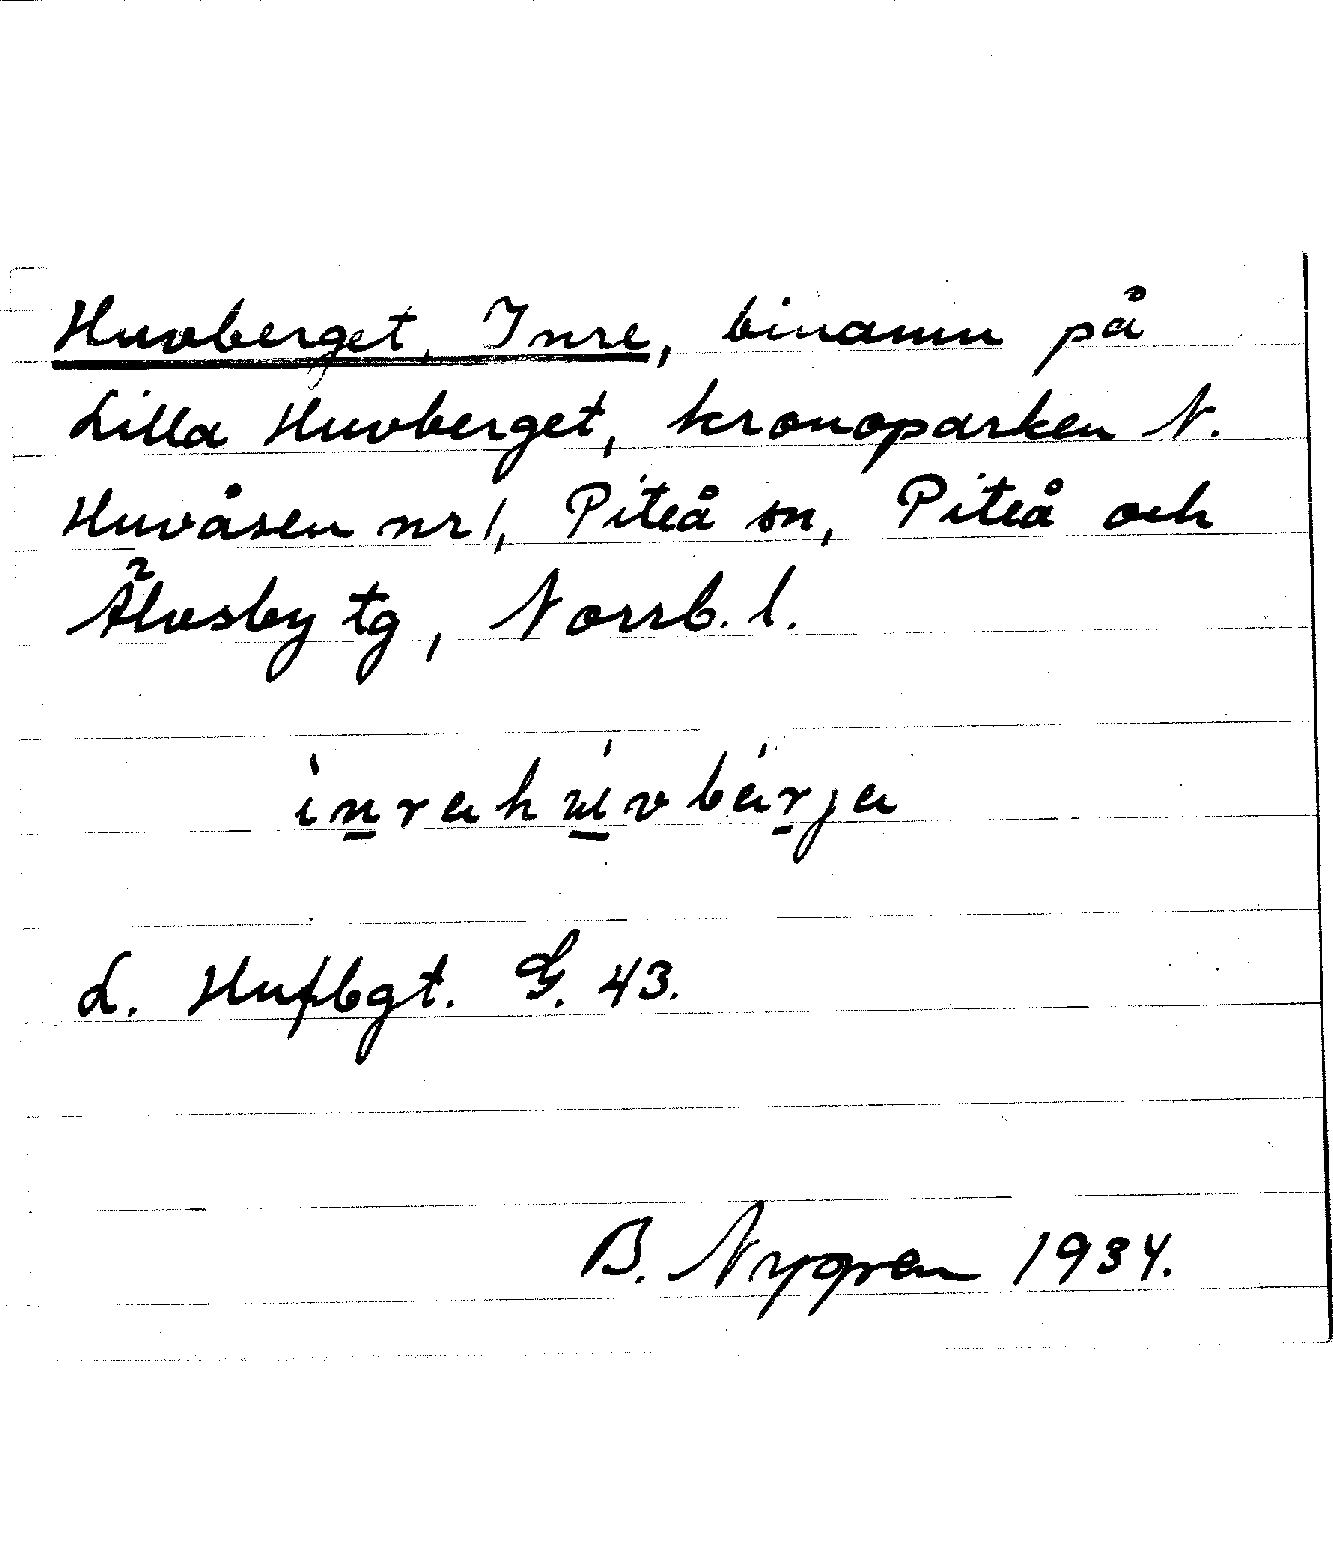 Huvberget, Inre, binamn på
Lilla Huvberget, kronoparken N.
Huvåsen nr 1, Piteå sn, Piteå och
Älvsby tg, Norrb. l.
L. Hufbgt. G. 43.
B. Nygren 1934.